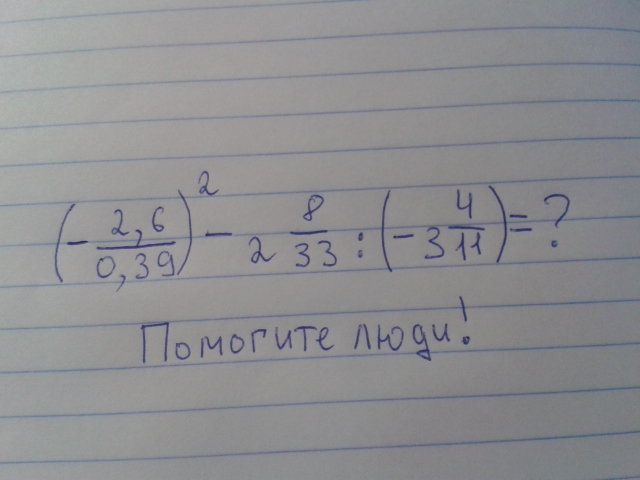 (- 2,6/0,39)² - 2 8/33 : (- 3 4/11) = ?
Помогите люди!